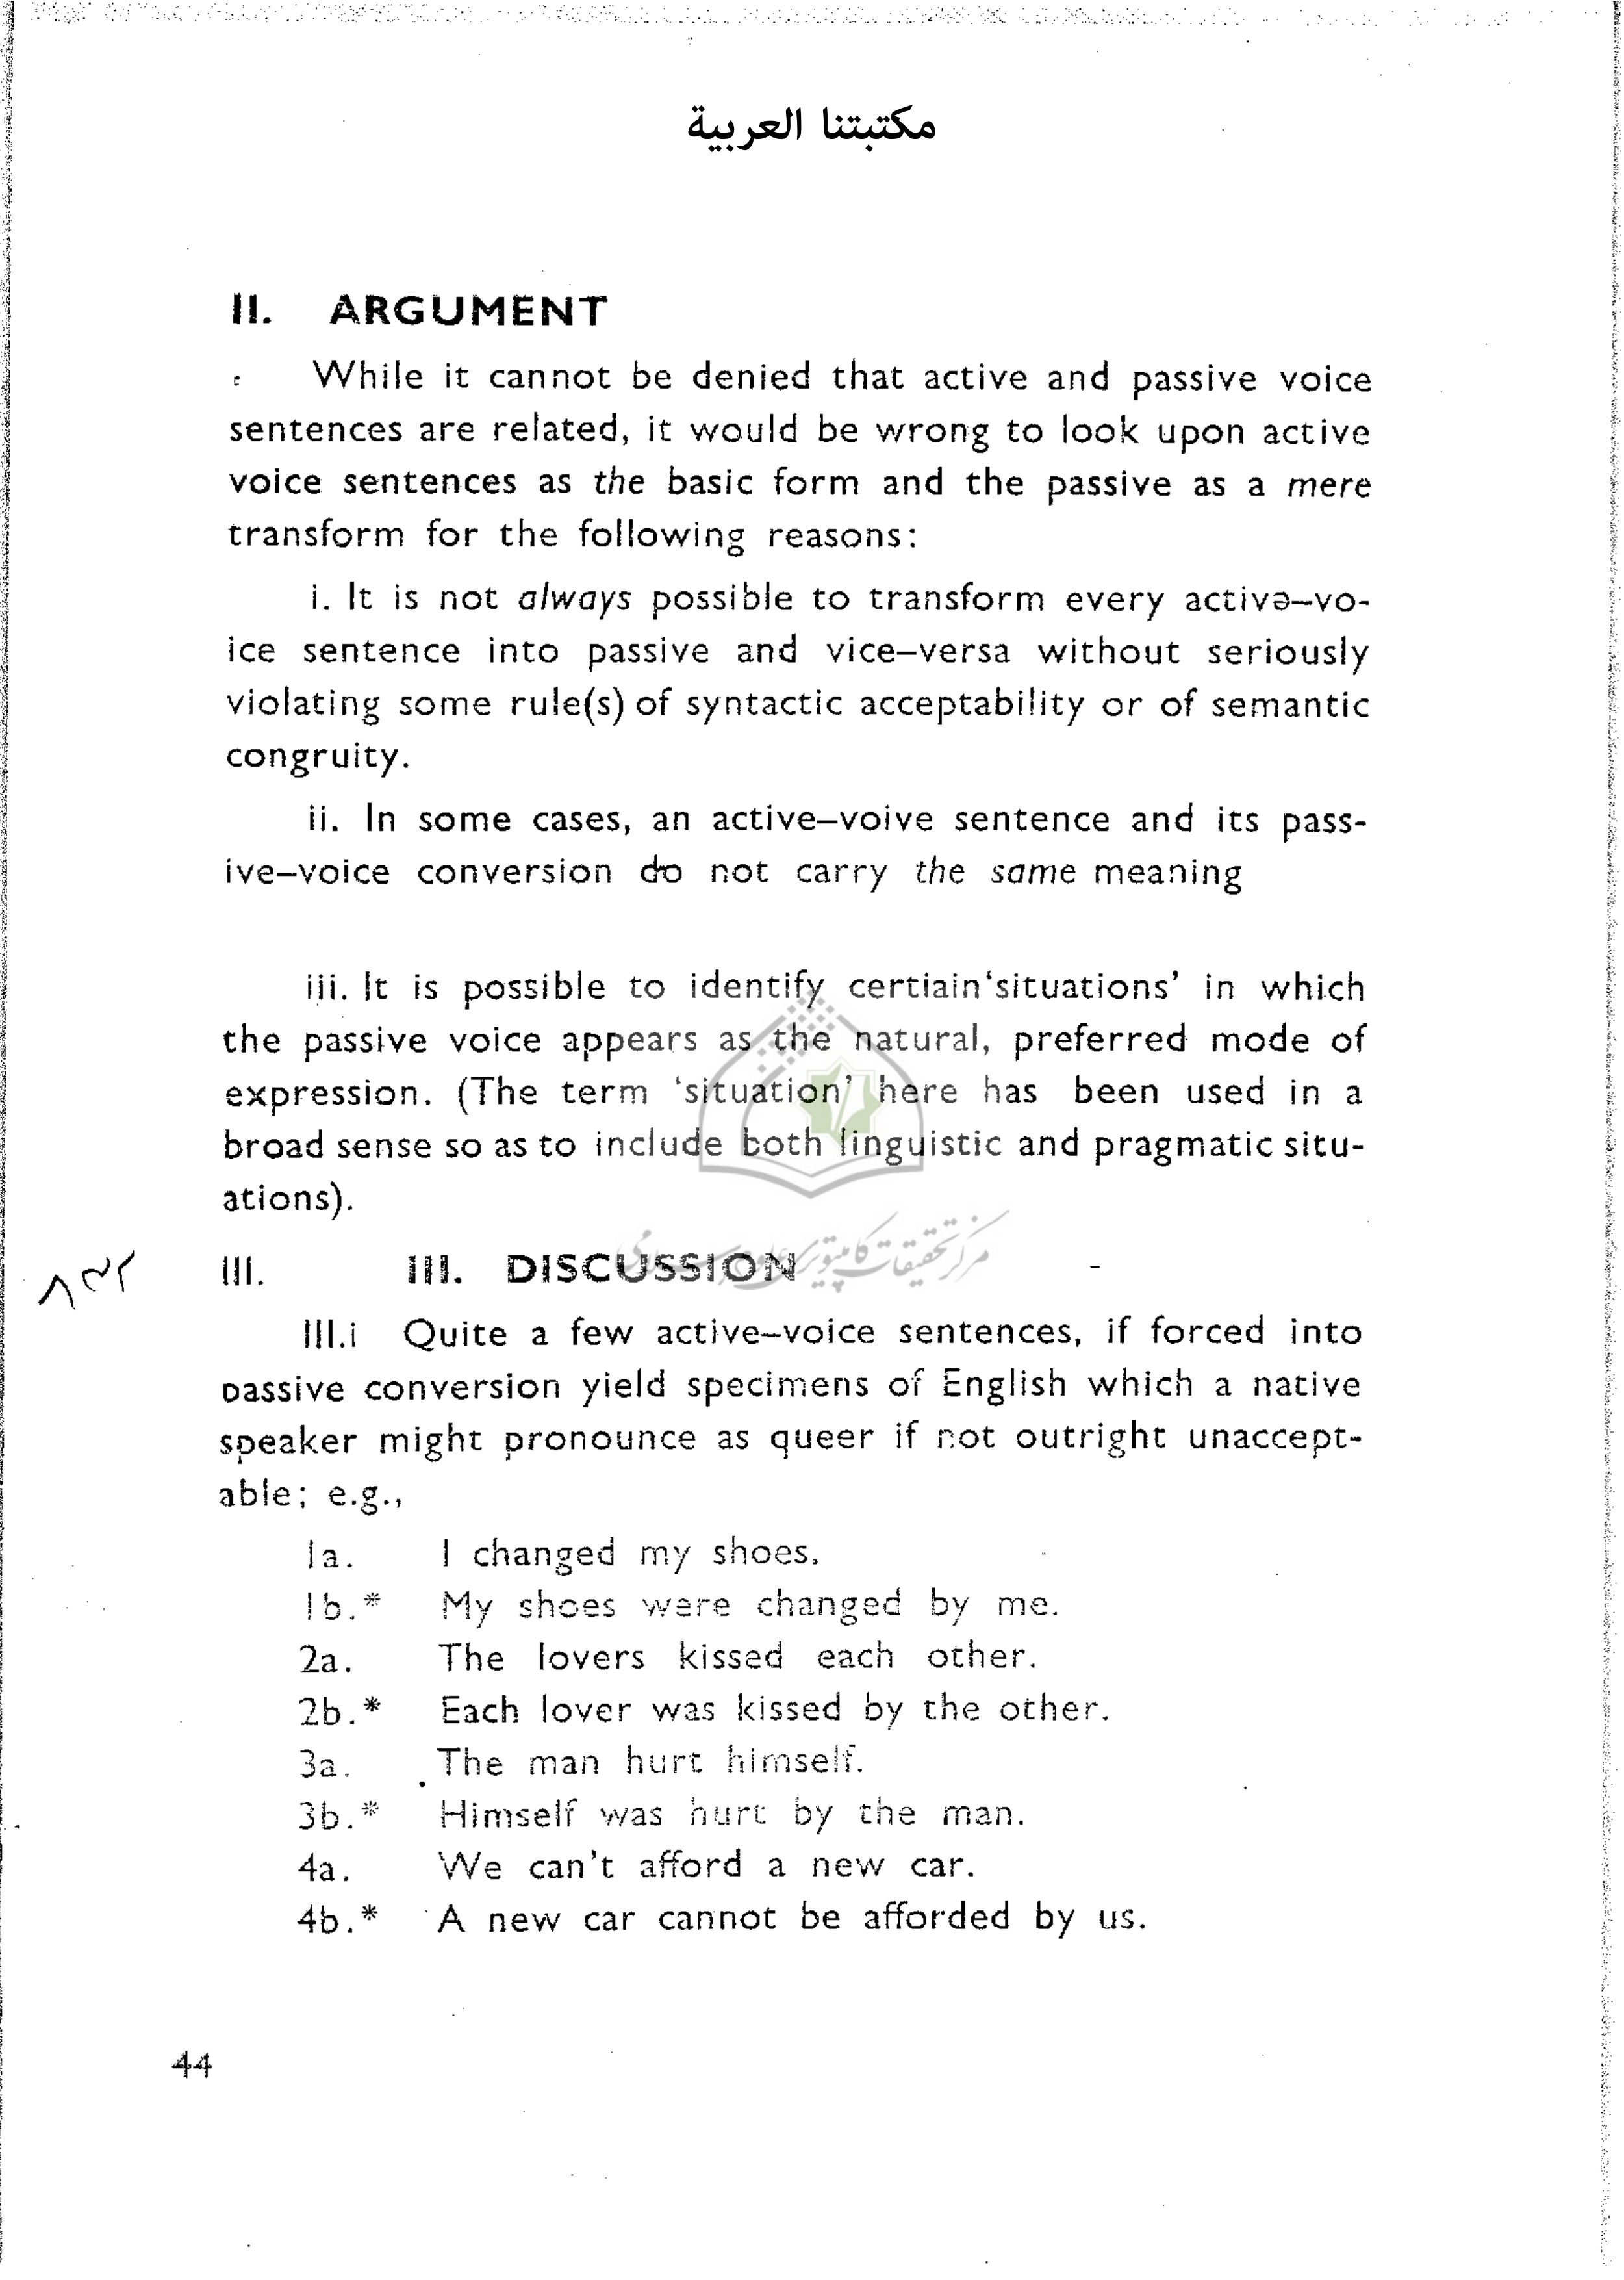 مكتبتنا العربية
II. ARGUMENT
While it cannot be denied that active and passive voice
sentences are related, it would be wrong to look upon active
voice sentences as the basic form and the passive as a mere
transform for the following reasons:
i. It is not always possible to transform every active–vo-
ice sentence into passive and vice–versa without seriously
violating some rule(s) of syntactic acceptability or of semantic
congruity.
ii. In some cases, an active–voive sentence and its pass-
ive–voice conversion do not carry the same meaning
iii. It is possible to identify certiain ‘situations’ in which
the passive voice appears as the natural, preferred mode of
expression. (The term ‘situation’ here has been used in a
broad sense so as to include both linguistic and pragmatic situ-
ations).
III. III. DISCUSSION -
III.i Quite a few active–voice sentences, if forced into
passive conversion yield specimens of English which a native
speaker might pronounce as queer if not outright unaccept-
able; e.g.,
1a. I changed my shoes.
1b.* My shoes were changed by me.
2a. The lovers kissed each other.
2b.* Each lover was kissed by the other.
3a. The man hurt himself.
3b.* Himself was hurt by the man.
4a. We can't afford a new car.
4b.* A new car cannot be afforded by us.
44